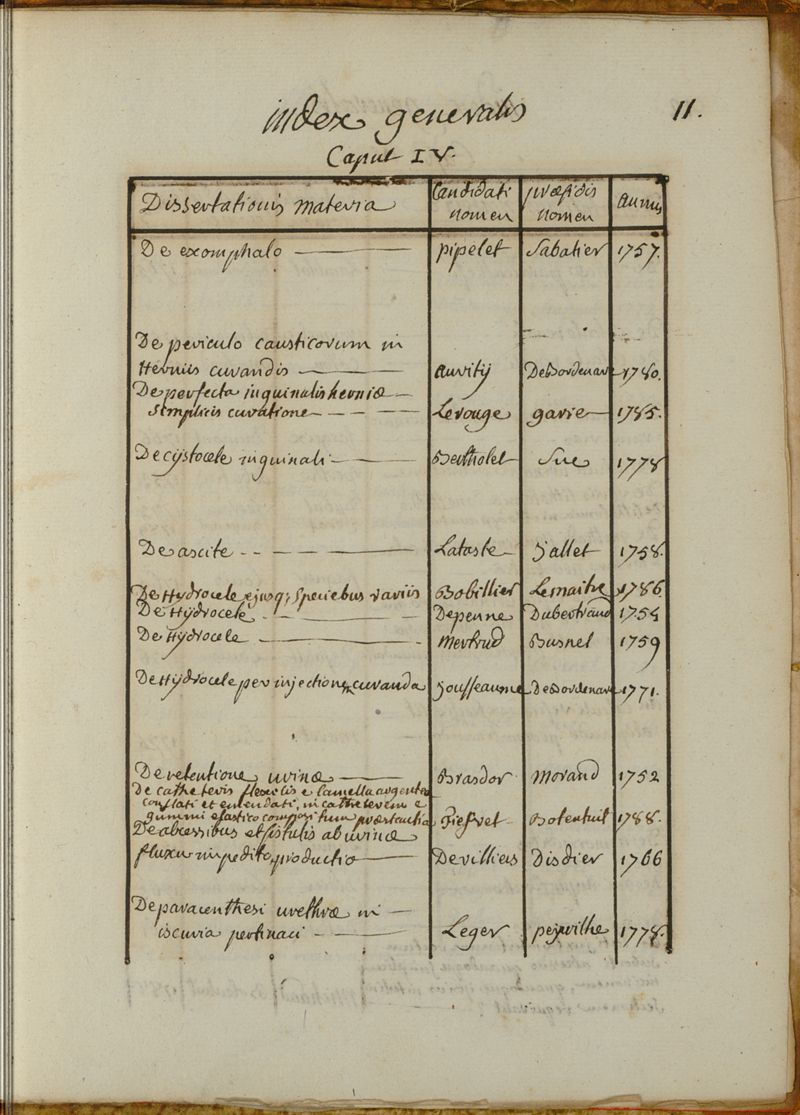 index generalis 11.
Caput IV.
Dissertationis materia Candidati nomen præsidis nomen annus
De exomphalo pipelet Sabatier 1757.
De periculo causticorum in
Herniis curandis auvity DeBordenave 1780.
De perfecta inguinalis herniæ
simplicis curatione Lerouge garre 1785.
De cystocele inguinali Bertholet Sue 1778
De ascite Lataste Sallet 1758.
De Hydrocele ejusq; speciebus variis Bobillier Lemaitre 1786
De Hydrocele Depenne Dubertrand 1754
De Hydrocele Mertrud Busnel 1759
De Hydrocele per injectionem curanda Jousseaume DeBordenave 1771.
De retentione urinæ Brasdor Morand 1752
De catheteris flexilis e lamella argentea
conflati et emendati, in catheterem e
gummi elastico compositum præstantia Botentuit 1788.
De abcessibus et fistulis ab urinæ
fluxu impedito productis Devilliers Disdier 1766
De paracenthesi urethræ in
iscuria pertinaci Leger peyrilhe 1778.